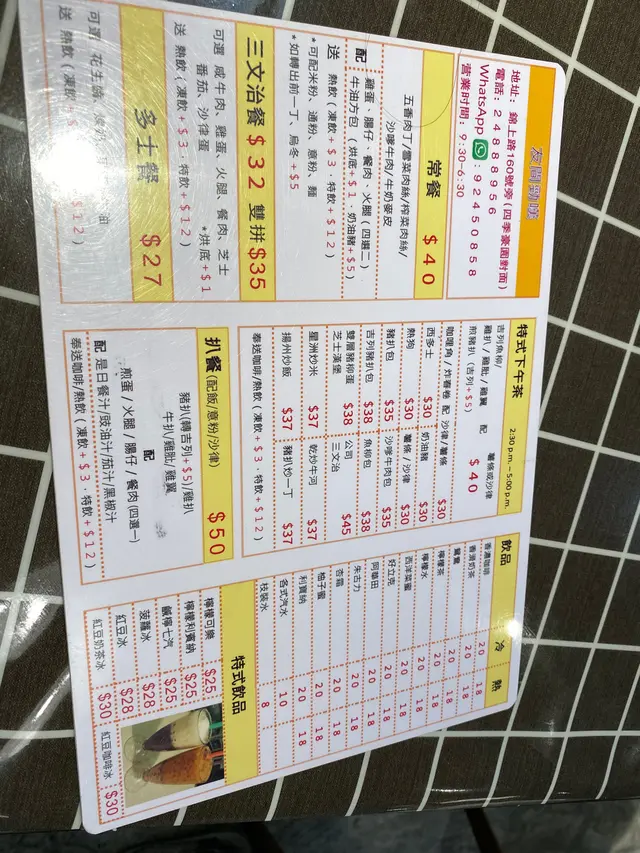 地址：錦上路160號旁(四季豪園對面)
電話：24888956
WhatsApp：92450858
營業時間：9:30-6:30
常餐 $40
五香肉丁/雪菜肉絲/榨菜肉絲/
沙嗲牛肉/牛奶麥皮
配 雞蛋、腸仔、餐肉、火腿(四選二)
牛油方包(烘底+$1、奶油豬+$5)
送 熱飲(凍飲+$3·特飲+$12)
*可配米粉、通粉、意粉、麵
*如轉出前一丁、烏冬+$5
三文治餐 $32 雙拼$35
可選 咸牛肉、雞蛋、火腿、餐肉、芝士
番茄、沙律蛋 *烘底+$1
送 熱飲(凍飲+$3·特飲+$12)
多士餐 $27
可選 花生
油
送 熱飲(凍飲+$
$12)
特式下午茶 2:30 p.m. – 5:00 p.m.
吉列魚柳/
雞扒/雞肶/雞翼 配 薯條或沙律
煎豬扒(吉列+$5) $40
咖喱角/炸春卷 配 沙律/薯條 $30
西多士 $30 奶油豬 $30
熱狗 $30 薯條/沙律 $30
豬扒包 $35 沙嗲牛肉包 $35
吉列豬扒包 $38 魚柳包 $38
雙層豬柳蛋芝士漢堡 $38 公司三文治 $45
星洲炒米 $37 乾炒牛河 $37
揚州炒飯 $37 豬扒炒一丁 $37
奉送咖啡/熱飲(凍飲+$3·特飲+$12)
扒餐(配飯/意粉/沙律) $50
豬扒(轉吉列+$5)/雞扒
牛扒/雞肶/雞翼
配
煎蛋/火腿/腸仔/餐肉(四選一)
配 是日餐汁/豉油汁/茄汁/黑椒汁
奉送咖啡/熱飲(凍飲+$3·特飲+$12)
飲品 冷 熱
香濃咖啡 20 18
香滑奶茶 20 18
鴛鴦 20 18
檸檬茶 20 18
檸檬水 20 18
西洋菜蜜 20 18
好立克 20 18
阿華田 20 18
朱古力 20 18
杏霜 20 18
柚子蜜 20 18
利賓納 20 18
各式汽水 10
枝裝水 8
特式飲品
檸檬可樂 $25
檸檬利賓納 $25
鹹檸七汽 $25
菠蘿冰 $28
紅豆冰 $28
紅豆奶茶冰 $30
紅豆咖啡冰 $30